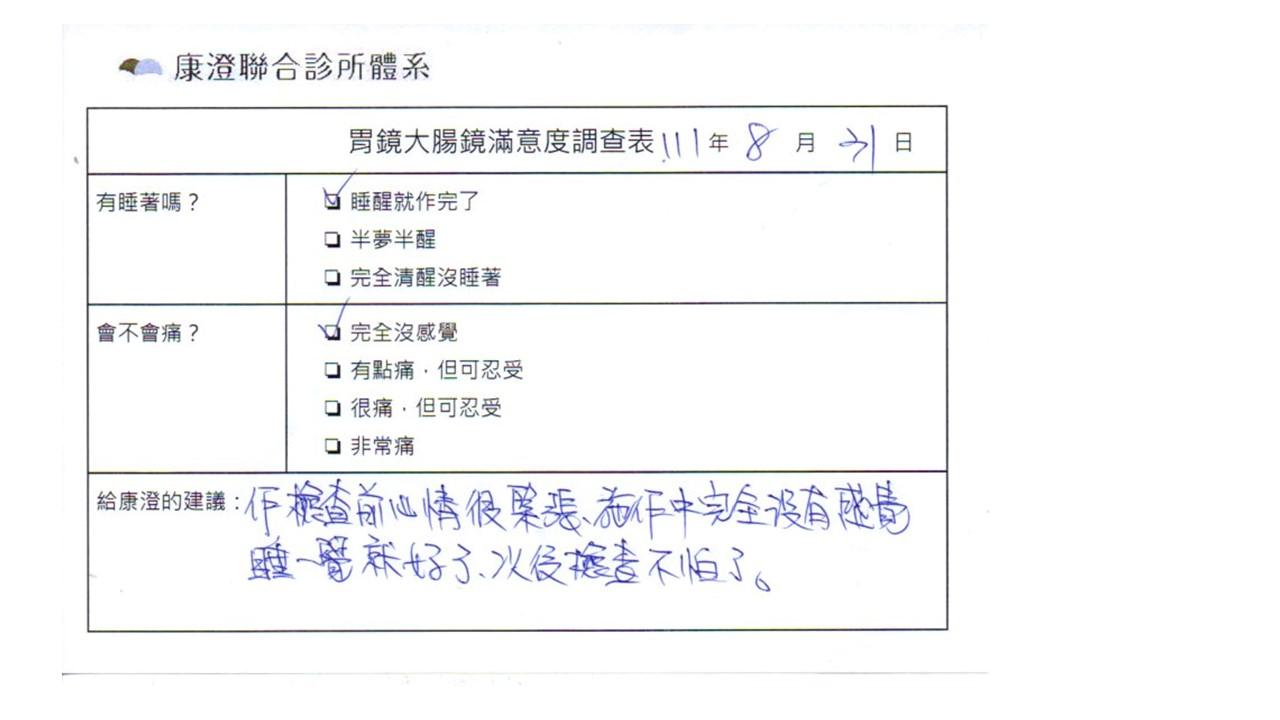 康澄聯合診所體系
胃鏡大腸鏡滿意度調查表 111 年 8 月 31 日
有睡著嗎？
☑ 睡醒就作完了
❏ 半夢半醒
❏ 完全清醒沒睡著
會不會痛？
☑ 完全沒感覺
❏ 有點痛，但可忍受
❏ 很痛，但可忍受
❏ 非常痛
給康澄的建議：作檢查前心情很緊張、施作中完全沒有感覺
睡一覺就好了、次後檢查不怕了。